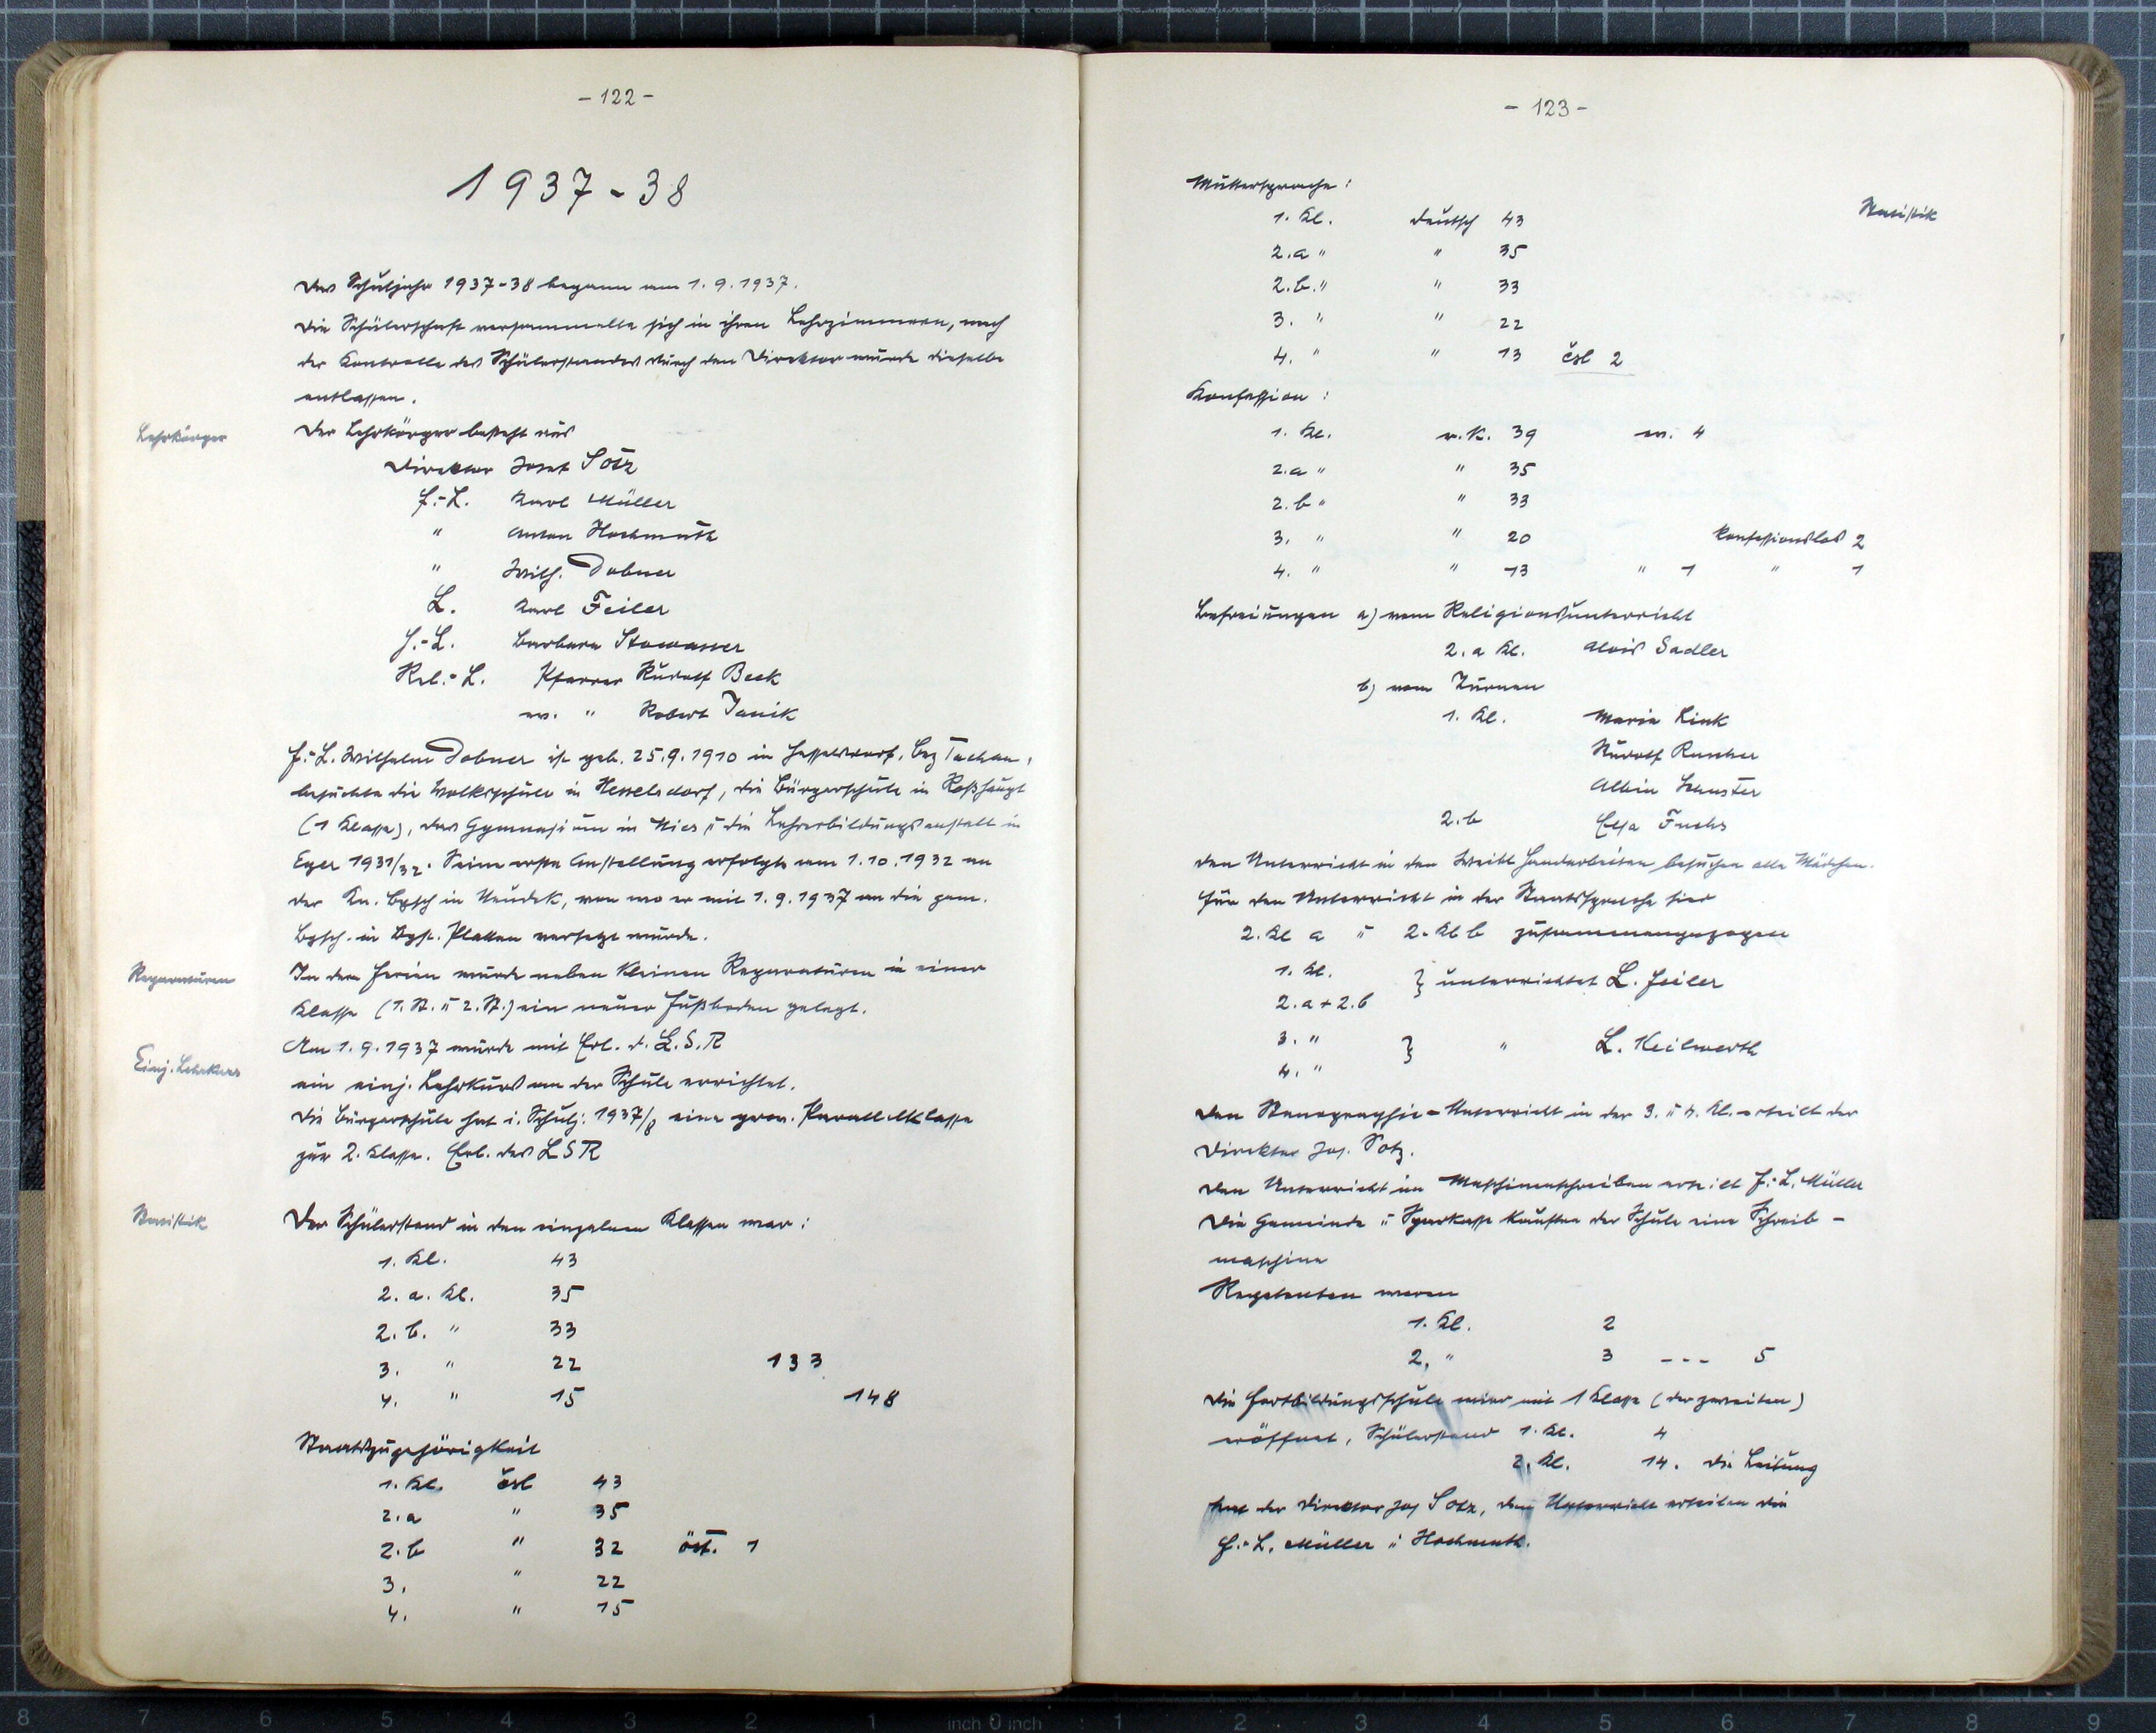 - 122 -
1937-38
Das Schuljahr 1937-38 begann am 1.9.1937.
Die Schülerschaft versammelte sich in ihren Lehrzimmern, nach
der Kontrolle des Schülerstandes durch den Direktor wurde dieselbe
entlassen.
Lehrkörper
Der Lehrkörper besteht aus
Direktor Josef Sotz
F.-L. Karl Müller
" Anton Hochmuth
" Wilh. Dobner
L. Karl Feiler
H.-L. Barbara Stowasser
Rel.-L. Pfarrer Rudolf Beck
ev. " Robert Janik
F.-L. Wilhelm Dobner ist geb. 25.9.1910 in Hesselsdorf, Bez Tachau,
besuchte die Volksschule in Hesselsdorf, die Bürgerschule in Roßhaupt
(1 Klasse), das Gymnasium in Mies u die Lehrerbildungsanstalt in
Eger 1931/32. Seine erste Anstellung erfolgte am 1.10.1932 an
der Kn. Bgsch in Neudek, von wo er mit 1.9.1937 an die gem.
Bgsch. in Bgst. Platten versetzt wurde.
Reparaturen
In den Ferien wurde neben kleinen Reparaturen in einer
Klasse (1. St. u 2. St.) ein neuer Fußboden gelegt.
Einj. Lehrkurs
Am 1.9.1937 wurde mit Erl. d. L.S.R
ein einj. Lehrkurs an der Schule errichtet.
Die Bürgerschule hat i. Schulj. 1937/8 eine prov. Parallelklasse
zur 2. Klasse. Erl. des LSR
Statistik
Der Schülerstand in den einzelnen Klassen war:
1. Kl. 43
2. a. Kl. 35
2. b. " 33
3. " 22 133
4. " 15 148
Staatszugehörigkeit
1. Kl. čsl 43
2. a " 35
2. b " 32 öst. 1
3. " 22
4. " 15
- 123 -
Muttersprache:
Statistik
1. Kl. deutsch 43
2. a " " 35
2. b. " " 33
3. " " 22
4. " " 13 čsl 2
Konfession:
1. Kl. r.k. 39 ev. 4
2. a " " 35
2. b " " 33
3. " " 20 konfessionslos 2
4. " " 13 " 1 " 1
Befreiungen a) vom Religionsunterricht
2. a Kl. Alois Sadler
b) vom Turnen
1. Kl. Maria Link
Rudolf Ruscher
Albin
2. b Elsa Fuchs
Den Unterricht in den weibl Handarbeiten besuchen alle Mädchen.
Für den Unterricht in der Staatssprache sind
2. Kl a u 2. Kl b zusammengezogen
1. Kl.
} unterrichtet L. Feiler
2. a + 2. b
3. "
} " L. Keilwerth
4. "
Den Stenographie-Unterricht in der 3. u 4. Kl. erteilt der
Direktor Jos. Sotz.
Den Unterricht im Maschinschreiben erteilt F.-L. Müller
Die Gemeinde u Sparkasse kauften der Schule eine Schreib-
maschine
Repetenten waren
1. Kl. 2
2. " 3 --- 5
Die Fortbildungsschule wird mit 1 Klasse (der zweiten)
eröffnet, Schülerstand 1. Kl. 4
2. Kl. 14. Die Leitung
hat der Direktor Jos Sotz, den Unterricht erteilen die
F.-L. Müller u Hochmuth.